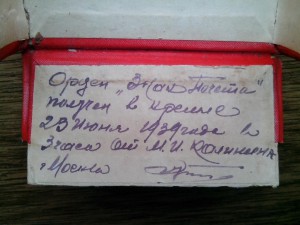 Орден „Знак Почета"
получен в Кремле
23 июня 1939 года в
3 часа от М.И. Калинина
г. Москва